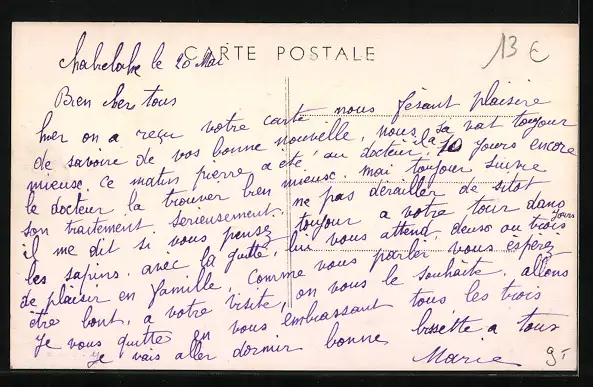 CARTE POSTALE
13 €
le 20 Mai
Bien cher tous
hier on a reçu votre carte nous fésant plaisire
de savoire de vos bonne nouvelle, nous sa vat toujour
mieuse. Ce matin pierre a été au docteur, il a 10 jours encore
le docteur la trouver bien mieuse. mai toujour suivre
son traitement serieusement, ne pas dérailler de sitot
il me dit si vous pensez toujour a votre tour dans
les sapins. avec la guitte, lui vous attend, deuse ou trois jours
de plaisir en famille. Comme vous parler vous esperez
être bont, a votre visite, on vous le souhaite. allons
Je vous quitte en vous embrassant tous les trois
Je vais aller dormir bonne bissette a tous
Marie
9-